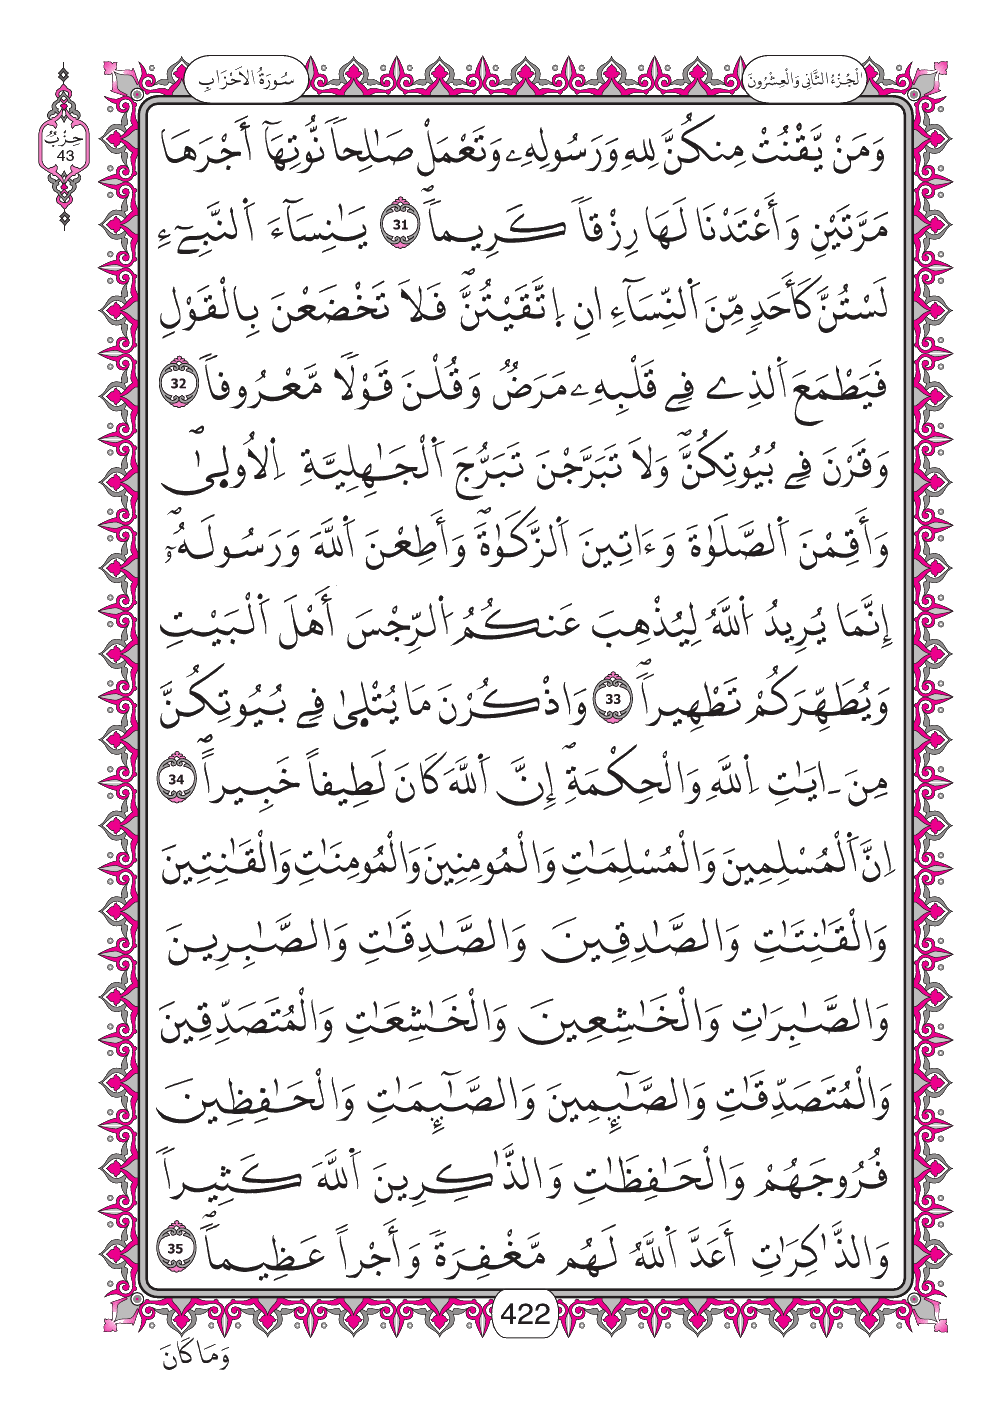 الْجُزْءُ الثَّانِي وَالْعِشْرُونَ
سُورَةُ الْأَحْزَابِ
حِزْبٌ
43
وَمَنْ يَّقْنُتْ مِنكُنَّ لِلهِ وَرَسُولِهِۦ وَتَعْمَلْ صَٰلِحاٗ نُّوتِهَآ أَجْرَهَا
مَرَّتَيْنِ وَأَعْتَدْنَا لَهَا رِزْقاٗ كَرِيماٗۖ 31 يَٰنِسَآءَ اَ۬لنَّبِےٓءِ
لَسْتُنَّ كَأَحَدٖ مِّنَ اَ۬لنِّسَآءِ انِ اِ۪تَّقَيْتُنَّۖ فَلَا تَخْضَعْنَ بِالْقَوْلِ
فَيَطْمَعَ اَ۬لذِے فِے قَلْبِهِۦ مَرَضٞ وَقُلْنَ قَوْلاٗ مَّعْرُوفاٗۖ 32
وَقَرْنَ فِے بُيُوتِكُنَّۖ وَلَا تَبَرَّجْنَ تَبَرُّجَ اَ۬لْجَٰهِلِيَّةِ اِ۬لُاول۪ىٰۖ
وَأَقِمْنَ اَ۬لصَّلَوٰةَ وَءَاتِينَ اَ۬لزَّكَوٰةَۖ وَأَطِعْنَ اَ۬للَّهَ وَرَسُولَهُۥٓۖ
إِنَّمَا يُرِيدُ اُ۬للَّهُ لِيُذْهِبَ عَنكُمُ اُ۬لرِّجْسَ أَهْلَ اَ۬لْبَيْتِ
وَيُطَهِّرَكُمْ تَطْهِيراٗۖ 33 وَاذْكُرْنَ مَا يُتْل۪ىٰ فِے بُيُوتِكُنَّ
مِنَ ـ ايَٰتِ اِ۬للَّهِ وَالْحِكْمَةِۖ إِنَّ اَ۬للَّهَ كَانَ لَطِيفاً خَبِيراًۖ 34
اِنَّ اَ۬لْمُسْلِمِينَ وَالْمُسْلِمَٰتِ وَالْمُومِنِينَ وَالْمُومِنَٰتِ وَالْقَٰنِتِينَ
وَالْقَٰنِتَٰتِ وَالصَّٰدِقِينَ وَالصَّٰدِقَٰتِ وَالصَّٰبِرِينَ
وَالصَّٰبِرَٰتِ وَالْخَٰشِعِينَ وَالْخَٰشِعَٰتِ وَالْمُتَصَدِّقِينَ
وَالْمُتَصَدِّقَٰتِ وَالصَّٰٓئِمِينَ وَالصَّٰٓئِمَٰتِ وَالْحَٰفِظِينَ
فُرُوجَهُمْ وَالْحَٰفِظَٰتِ وَالذَّٰكِرِينَ اَ۬للَّهَ كَثِيراٗ
وَالذَّٰكِرَٰتِ أَعَدَّ اَ۬للَّهُ لَهُم مَّغْفِرَةٗ وَأَجْراً عَظِيماٗۖ 35
422
وَمَا كَانَ